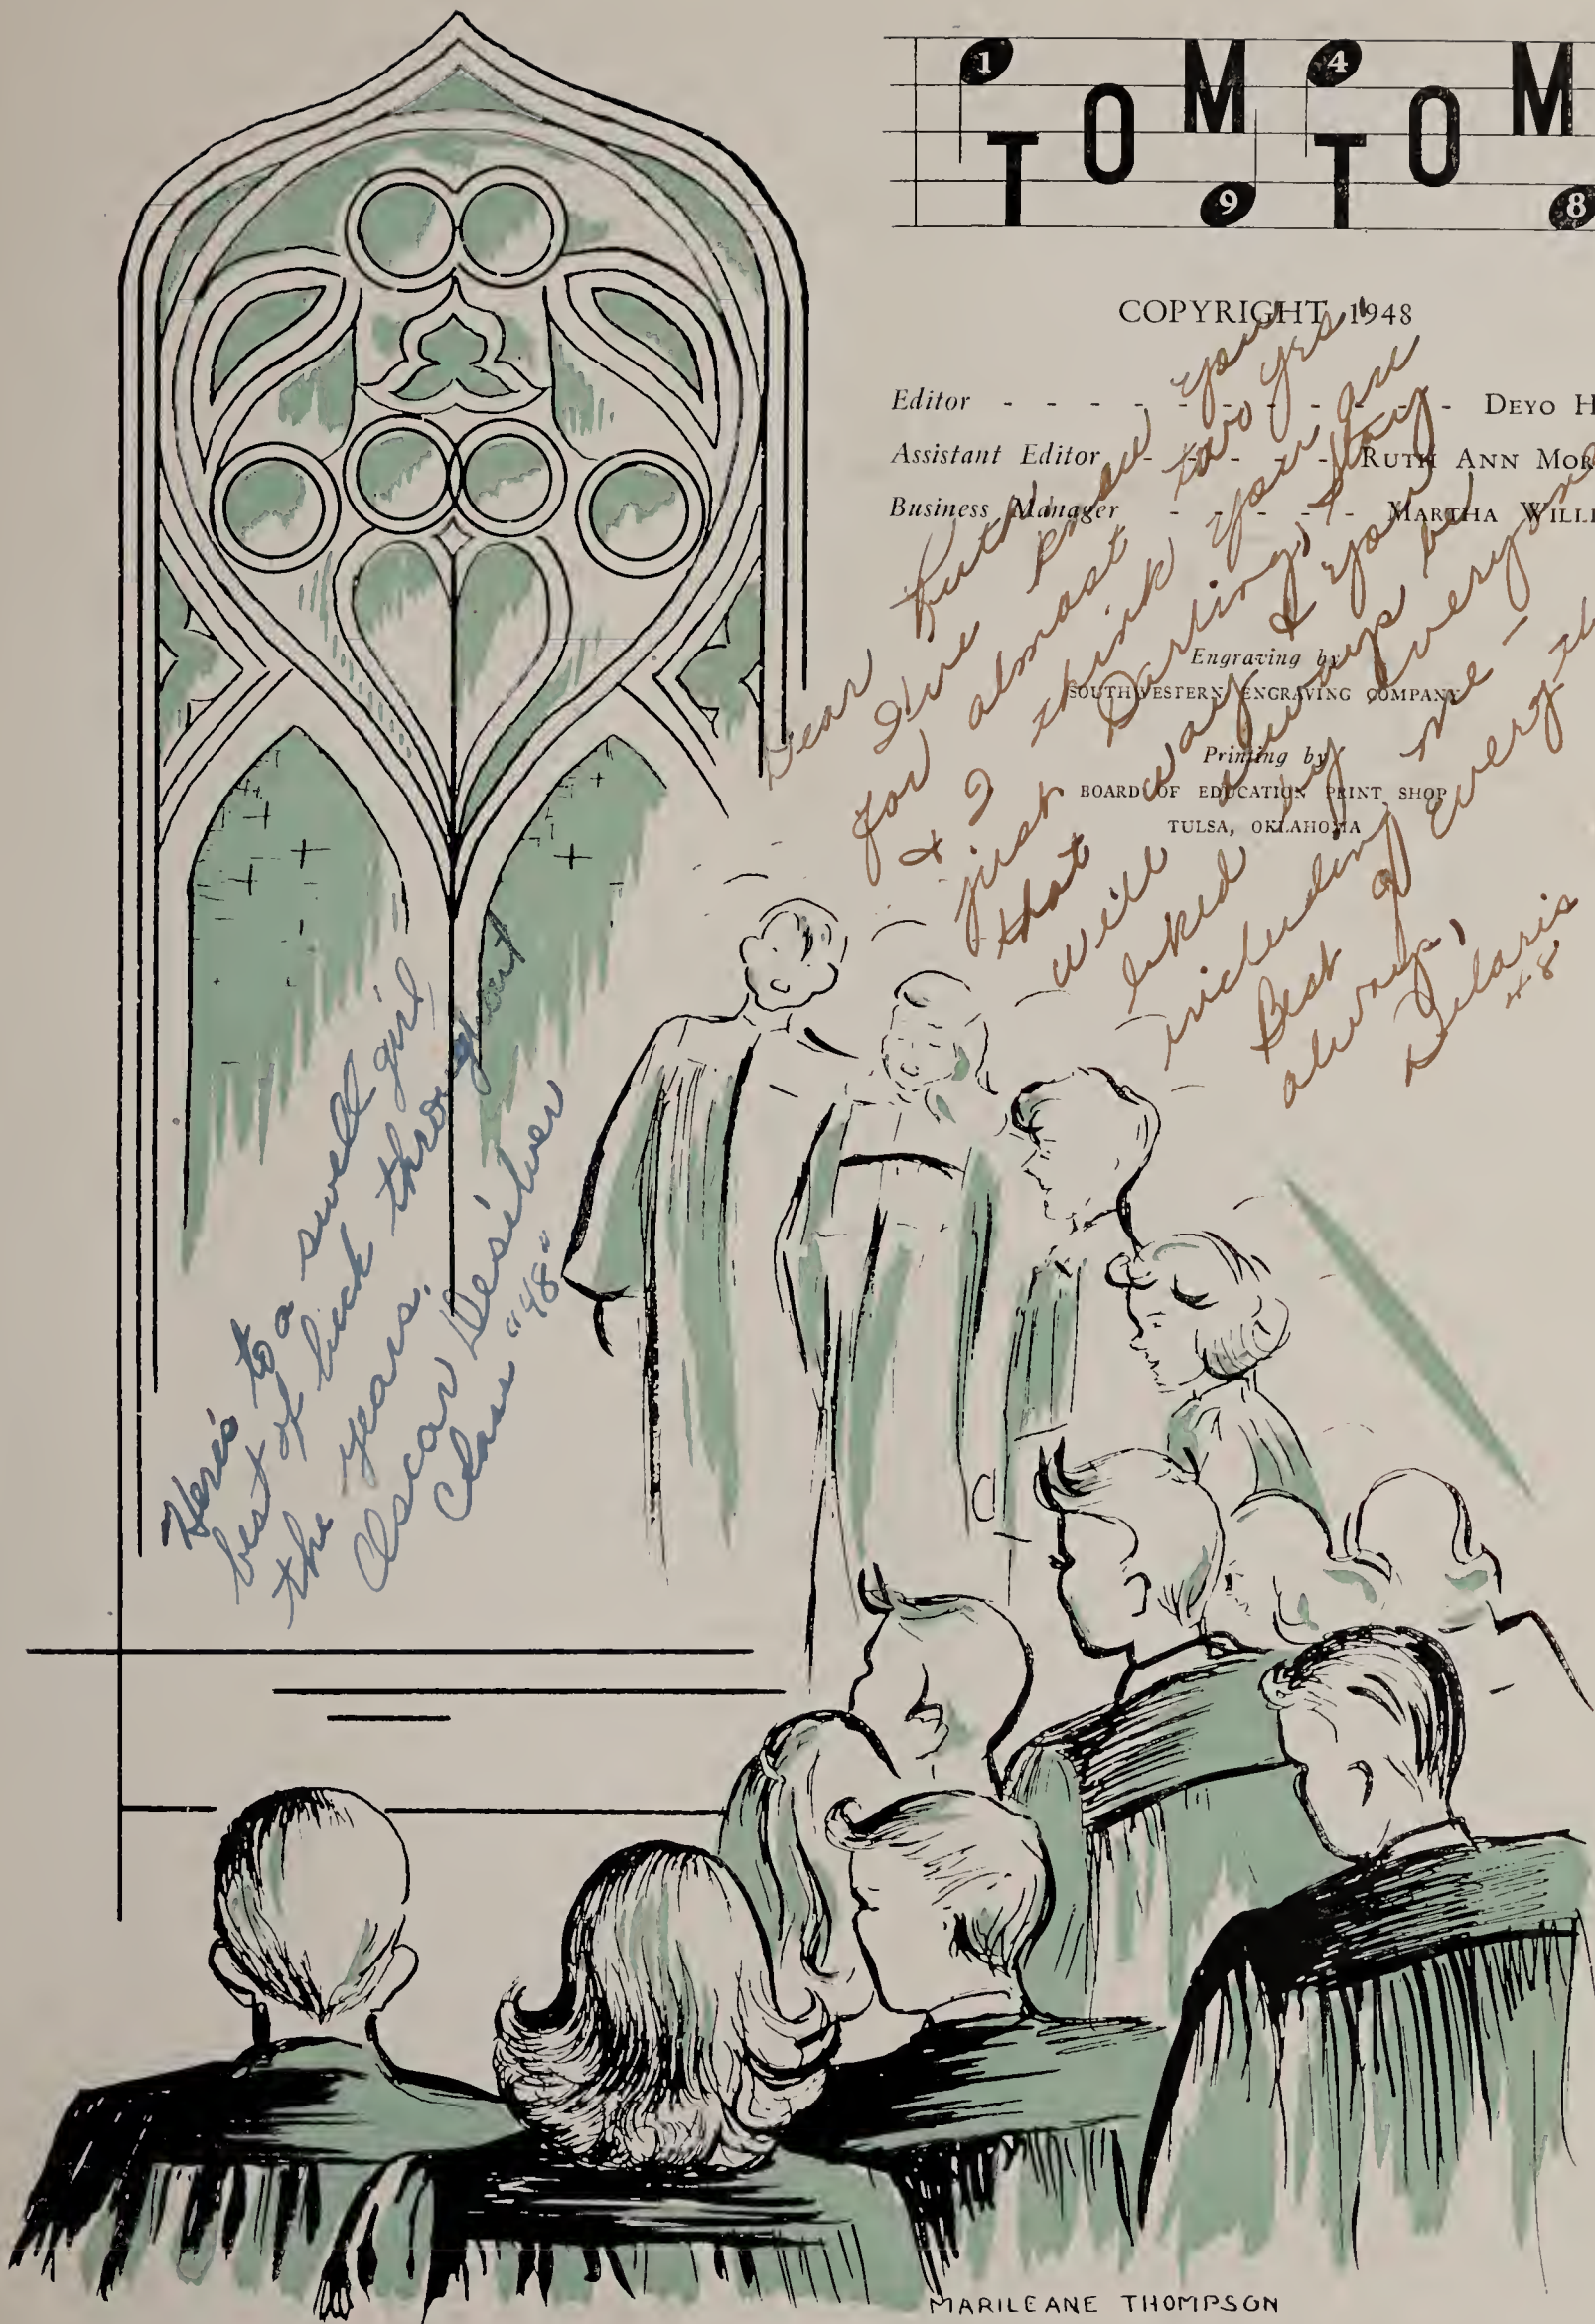 1 4
TOM TOM
9 8
COPYRIGHT, 1948
Editor - - - - - - - - - - - DEYO H
Assistant Editor - - - - - RUTH ANN MOR
Business Manager - - - - - MARTHA WILLI
Engraving by
SOUTHWESTERN ENGRAVING COMPANY
Printing by
BOARD OF EDUCATION PRINT SHOP
TULSA, OKLAHOMA
Dear Ruth,
I've know you
for almost two yrs
& I think you are
just Darling, stay
that way & you
will always be
liked by everyone
including me -
Best of everyth
always,
Delaris
48
Here's to a swell girl
best of luck throughout
the years.
Oscar Desilver
Class "48"
MARILEANE THOMPSON